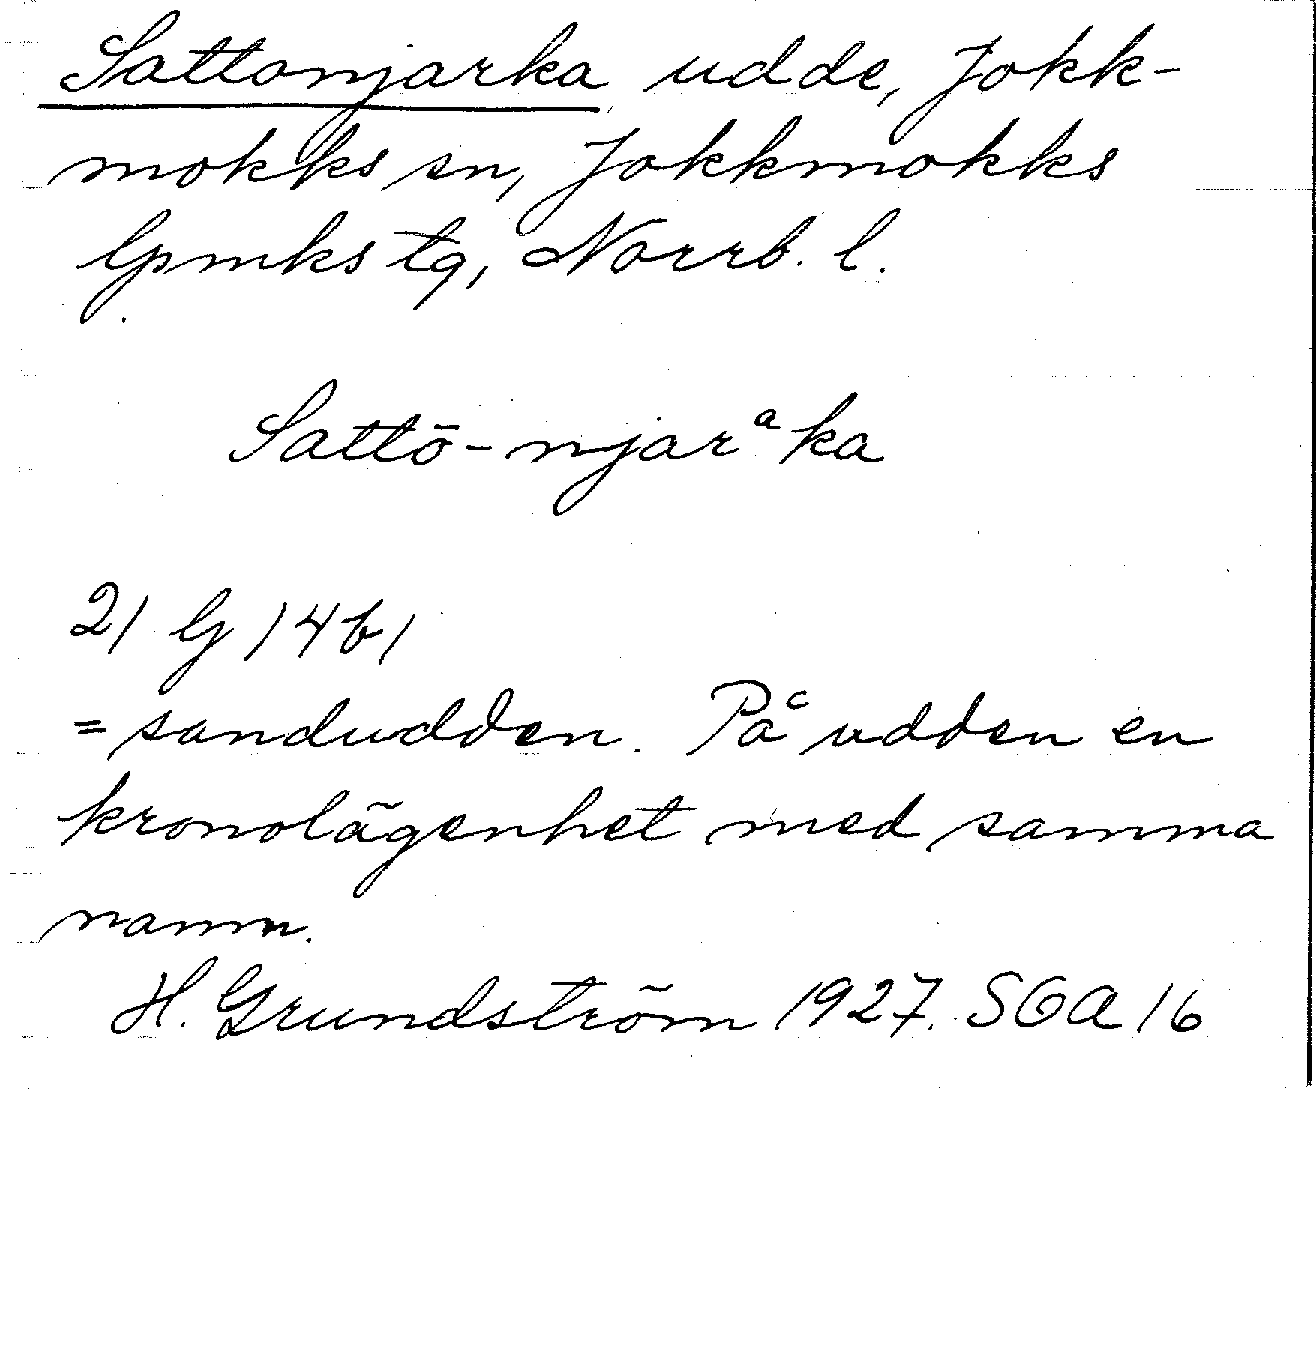 Sattonjarka udde, Jokk-
mokks sn, Jokkmokks
lpmks tg, Norrb. l.
Sattō-njarᵃka
2/ G /4b/
= sandudden. På udden en
kronolägenhet med samma
namn.
H. Grundström 1927. SOA 16